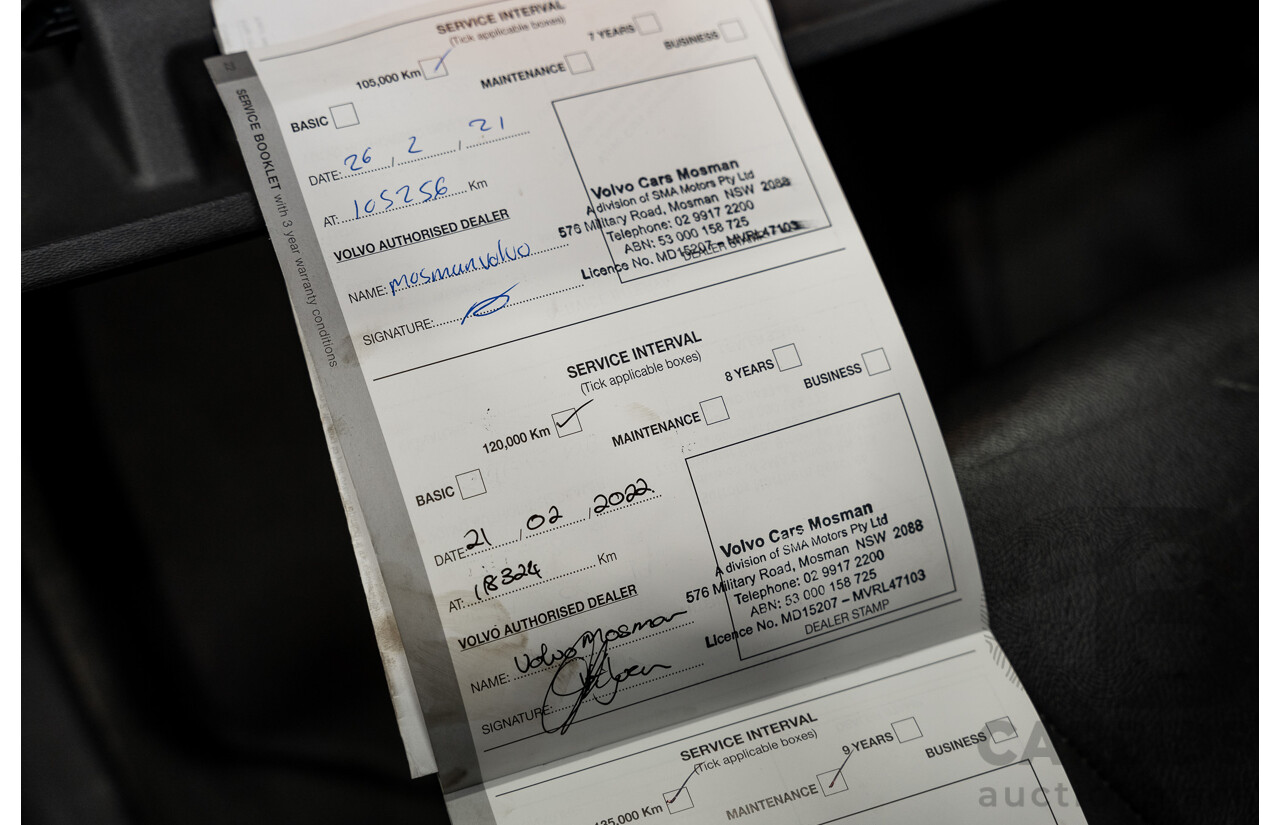 SERVICE INTERVAL
(Tick applicable boxes)
105,000 Km
7 YEARS
BASIC
MAINTENANCE
BUSINESS
DATE: 26 / 2 / 21
AT: 105256 Km
VOLVO AUTHORISED DEALER
NAME: mosman volvo
SIGNATURE:
Volvo Cars Mosman
A division of SMA Motors Pty Ltd
576 Military Road, Mosman NSW 2088
Telephone: 02 9917 2200
ABN: 53 000 158 725
Licence No. MD15207 – MVRL47103
DEALER STAMP
SERVICE BOOKLET with 3 year warranty conditions
SERVICE INTERVAL
(Tick applicable boxes)
120,000 Km
8 YEARS
BASIC
MAINTENANCE
BUSINESS
DATE: 21 / 02 / 2022
AT: 18324 Km
VOLVO AUTHORISED DEALER
NAME: Volvo Mosman
SIGNATURE:
Volvo Cars Mosman
A division of SMA Motors Pty Ltd
576 Military Road, Mosman NSW 2088
Telephone: 02 9917 2200
ABN: 53 000 158 725
Licence No. MD15207 – MVRL47103
DEALER STAMP
SERVICE INTERVAL
(Tick applicable boxes)
135,000 Km
9 YEARS
MAINTENANCE
BUSINESS